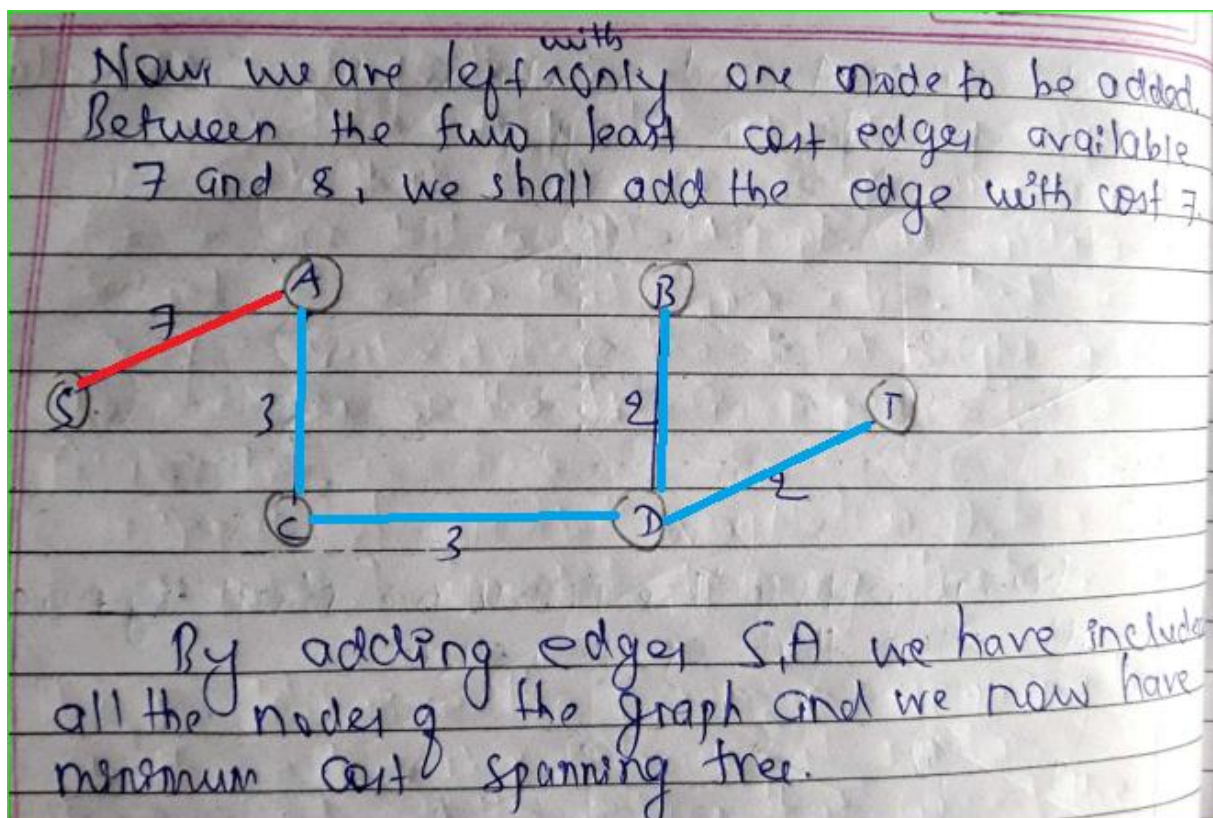 with
Now we are left ^ only one node to be added.
Between the two least cost edges available
7 and 8, we shall add the edge with cost 7.
A
B
7
S
3
2
T
C
D
2
3
By adding edges S,A we have include
all the nodes of the graph and we now have
minimum cost spanning tree.